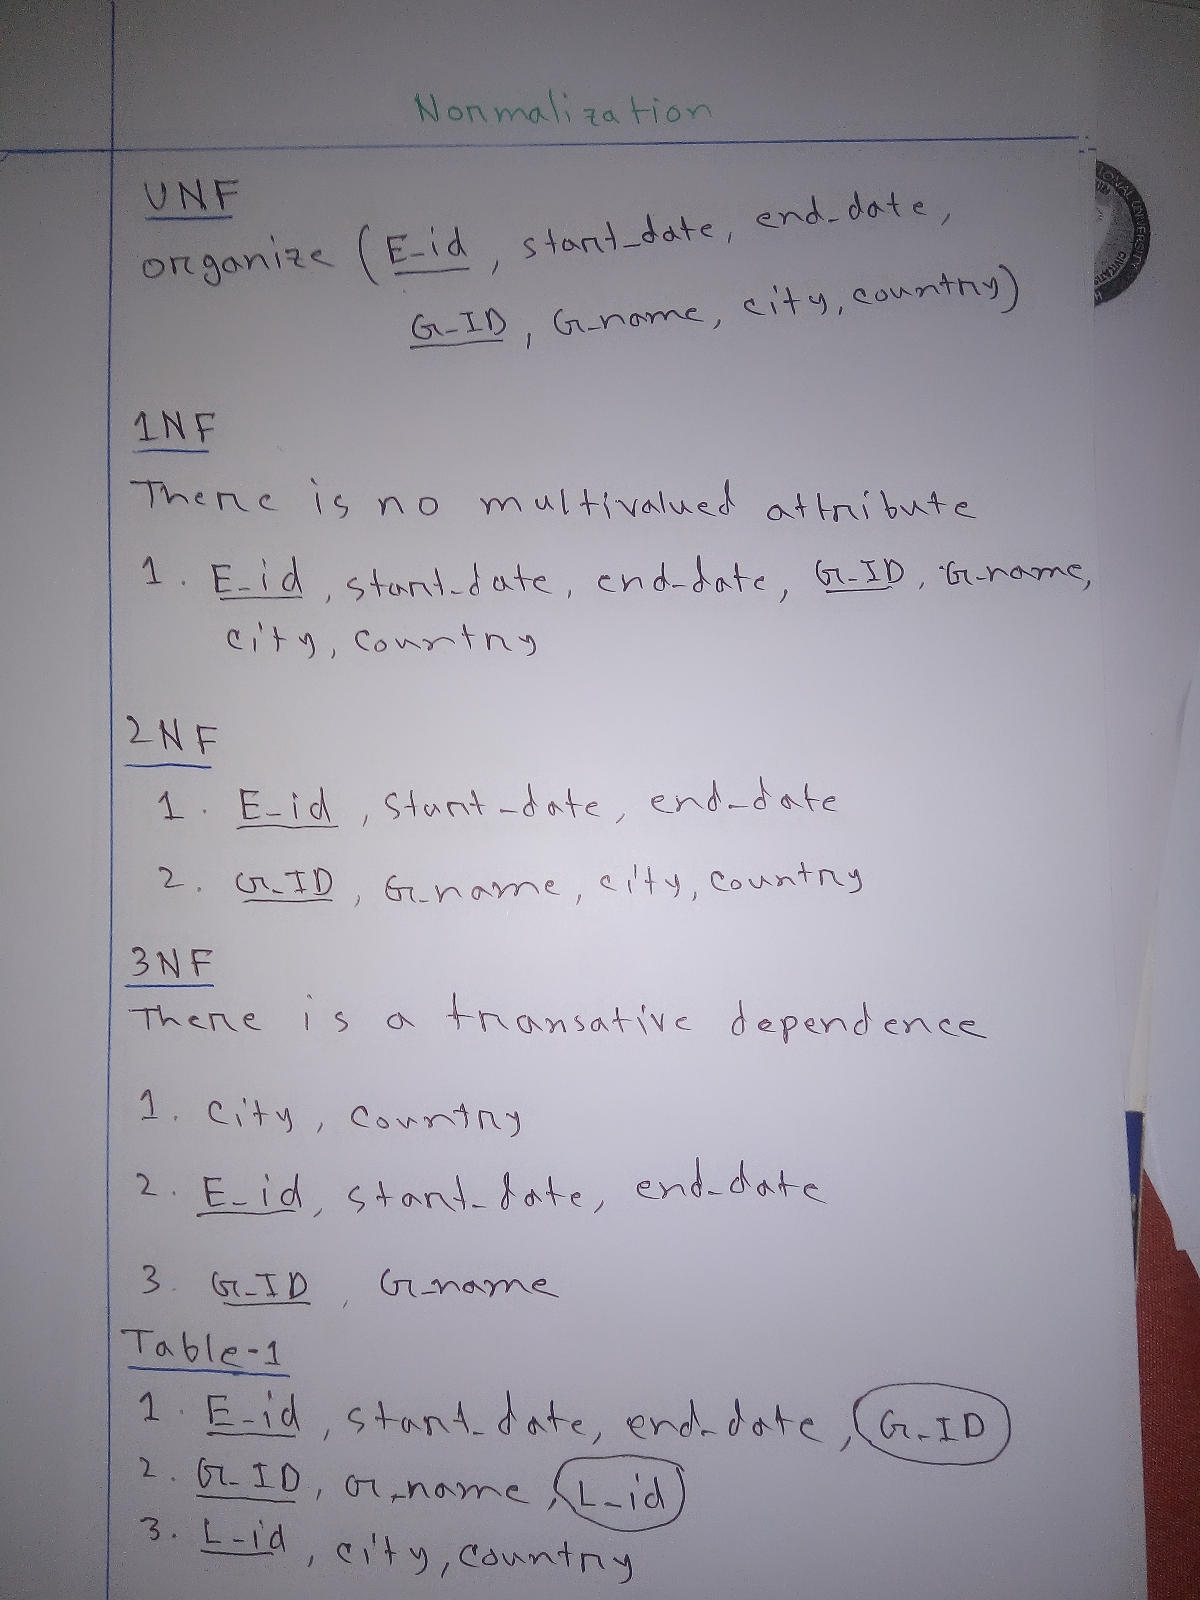 Normalization
UNF
organize (E_id, start_date, end_date,
G_ID, G_name, city, country)
1NF
There is no multivalued attribute
1. E_id, start_date, end_date, G_ID, G_name,
city, country
2NF
1. E_id, start_date, end_date
2. G_ID, G_name, city, country
3NF
There is a transative dependence
1. city, country
2. E_id, start_date, end_date
3. G_ID, G_name
Table-1
1. E_id, start_date, end_date, G_ID
2. G_ID, G_name, L_id
3. L_id, city, country
UNIVERSITY